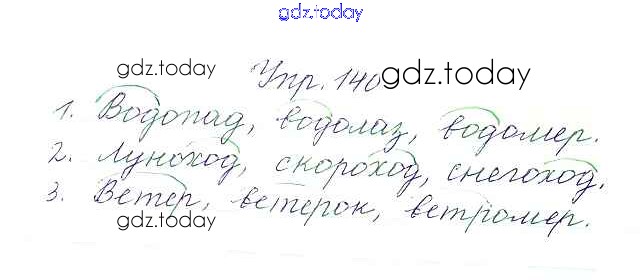 gdz.today
gdz.today Упр. 140 gdz.today
1. Водопад, водолаз, водомер.
2. Луноход, скороход, снегоход.
3. Ветер, ветерок, ветромер.
gdz.today